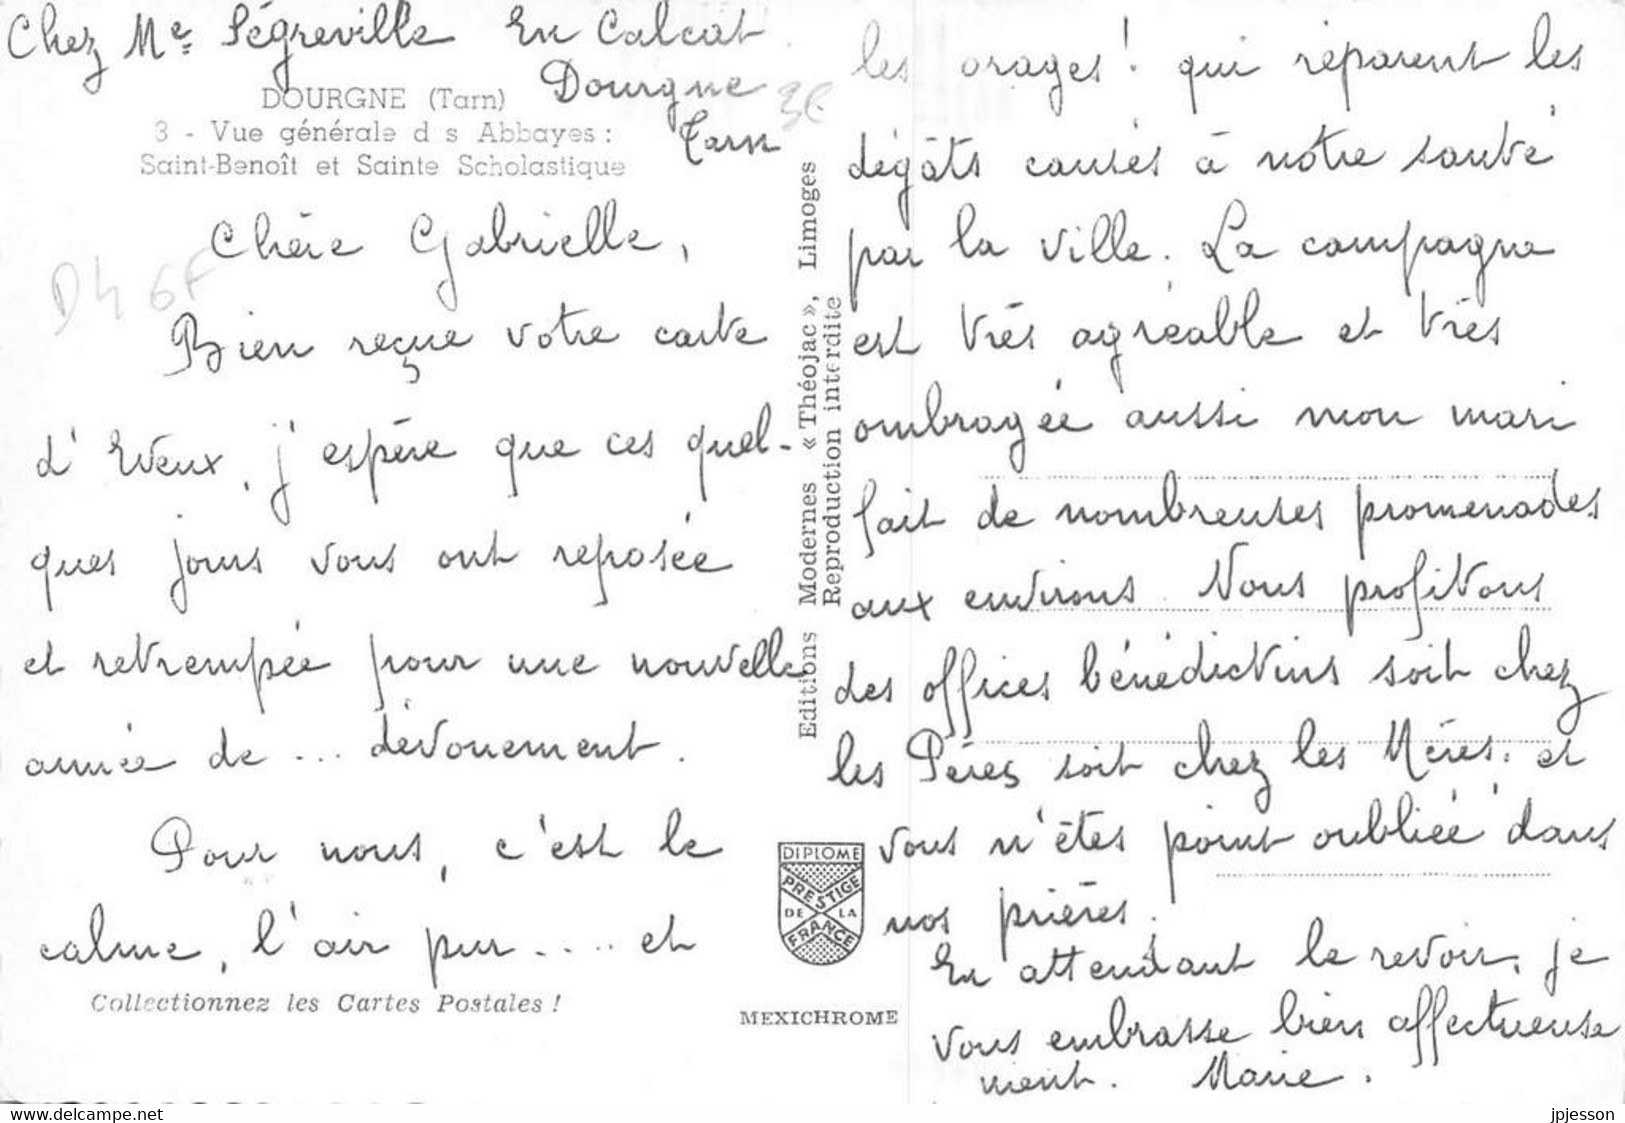 Chez Me Ségreville En Calcat
Dourgne
Tarn
DOURGNE (Tarn)
3 - Vue générale d s Abbayes :
Saint-Benoît et Sainte Scholastique
3€
D4 6F
Chère Gabrielle,
Bien reçue votre carte
d'Eveux, j'espère que ces quel-
ques jours vous ont reposée
et retrempée pour une nouvelle
année de ... dévouement.
Pour nous, c'est le
calme, l'air pur .... et
Collectionnez les Cartes Postales !
Editions Modernes « Théojac », Limoges
Reproduction interdite
DIPLOME
PRESTIGE
DE LA
FRANCE
MEXICHROME
les orages ! qui réparent les
dégâts causés à notre santé
par la ville. La campagne
est très agréable et très
ombragée aussi mon mari
fait de nombreuses promenades
aux environs. Nous profitons
des offices bénédictins soit chez
les Pères soit chez les Mères. et
vous n'êtes point oubliée dans
nos prières.
En attendant le revoir, je
vous embrasse bien affectueuse
ment. Marie.
jpjesson
www.delcampe.net